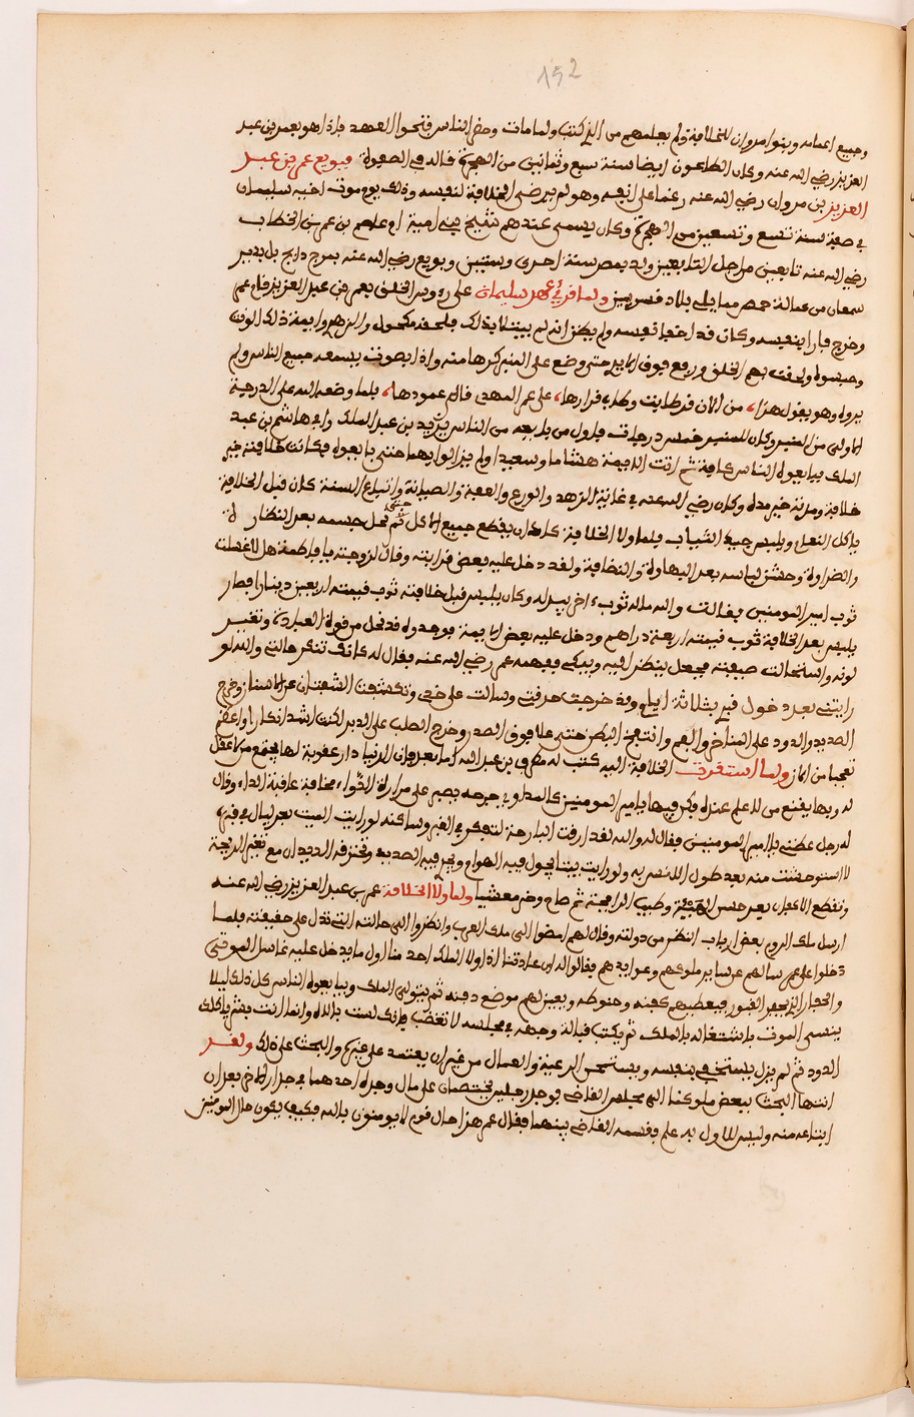 152
وجميع اعمامه وبنوا مروان للخلافة ولم يعلمهم من الذي كتب ولما مات وحضر الناس فتحوا العهد فإذا هو بعمر بن عبد
العزيز رضي الله عنه وكان الطاعون ايضا سنة سبع وثمانين من الهجرة قاله في الصفوة فبويع عمر بن عبد
العزيز بن مروان رضي الله عنه رغما على انفه وهو لم يرضى الخلافة لنفسه وذلك يوم موت اخيه سليمان
في صفر سنة تسع وتسعين من الهجرة وكان يسمى عندهم شيخ بني امية امه ام عاصم بن عمر بن الخطاب
رضي الله عنه تابعين من اجل التابعين ولد بمصر سنة احدى وستين وبويع رضي الله عنه بمرج دابق بل بدير
سمعان من عمالة حمص مما يلي بلاد قنسرين ولما قرئ عهد سليمان على رءوس الخلق بعمر بن عبد العزيز قام عمر
وخرج فارا بنفسه وكان قد اخفا نفسه ولم يظن انه لم يبتلا بذلك فلحقه مكحول والزهري وايمة ذلك الوقت
وحبسوه ولحقت بهم الخلق ورفع فوق الايدي حتى وضع على المنبر كرها منه واذا بصوت يسمعه جميع الناس ولم
يروه وهو يقول هذا، من الآن قد طابت وطاب قرارها، على عمر المهدي قام عمودها، فلما وضعه الله على الدرجة
الاولى من المنبر وكان للمنبر خمس درجات فاول من بايعه من الناس يزيد بن عبد الملك وابو هاشم بن عبد
الملك فبايعوه الناس كافة ثم اتت البيعة هشاما وسعيدا ولم يزالوا بهما حتى بايعوه فكانت خلافته خير
خلافة ومدته خير مدة وكان رضي الله عنه في غاية الزهد والورع والعفة والصيانة واتباع السنة كان قبل الخلافة
ياكل النعل ويلبس جيد الثياب فلما ولا الخلافة كان يقطع جميع الاكل حتى نحل جسمه بعد النظارة
والطراوة وخشن لباسه بعد البهاوة والنظافة ولقد دخل عليه بعض قرابته وقال لزوجته يا فاطمة هلا غسلت
ثوب امير المومنين فقالت والله ماله ثوب اخر يبدله وكان يلبس قبل خلافته ثوب قيمته اربعين دينارا فصار
يلبس بعد الخلافة ثوب قيمته اربعة دراهم ودخل عليه بعض الايمة فوجدوه قد نحل من قوة العبادة وتغير
لونه واستحالت صفته فجعل ينظر اليه ويبكي ففهمه عمر رضي الله عنه فقال له كانك تنكر حالتي والله لو
رايتني بعد دخول قبري بثلاثة ايام وقد خرجت حدقتي وسالت على خدي وتكشفت الشفتان عن الاسنان وخرج
الصديد والدود على المناخر والفم وانتفخ البطن حتى علا فوق الصدر وخرج الصلب على الدبر لكنت اشد انكارا واعظم
تعجبا من الان ولما استقرت الخلافة اليه كتب له مطرف بن عبد الله اما بعد فان الدنيا دار عقوبة لها يجتمع من لا عقل
له وبها يقنع من لا علم عنده فكن فيها يا امير المومنين كالمداوي جرحه يصبر على مرارة الدواء مخافة عاقبة الداء وقال
له رجل عظني يا امير المومنين فقال له والله لقد ارقت البارحة لتفكري في القبر وساكنه لو رايت الميت بعد ليال في قبره
لاستوحشت منه بعد طول الانس به ولو رايت بيتا تجول فيه الهوام ويجري فيه الصديد وتخترقه الديدان مع تغير الريحة
وتقطع الاكفان بعد حسن الهيئة وطيب الرائحة ثم صاح وخر مغشيا ولما ولا الخلافة عمر بن عبد العزيز رضي الله عنه
ارسل ملك الروم بعض ارباب النظر من دولته وقال لهم امضوا الى ملك العرب وانظروا الى حالته التي تدل على حقيقته فلما
دخلوا على عمر سالهم عن ساير ملوكهم وعوايدهم فقالوا له ان عادتنا اذا ولا الملك احد منا اول ما يدخل عليه غاسل الموتى
والحفار الذي يحفر القبور فيعطيهم كفنه وحنوطه ويعين لهم موضع دفنه ثم يتولى الملك ويبايعوه الناس كل ذلك ليلا
ينسى الموت باشتغاله بالملك ثم يكتب قبالة وجهه في مجلسه لا تغضب فانك لست بالاه وانما انت بشر ياكلك
الدود ثم لم يزل يستخفي بنفسه ويستحسن الرعية والعمال من غير ان يعتمد على غيره والبحث على ذلك ولقد
انتها البحث ببعض ملوكنا الى مجلس القاضي فوجد رجلين يختصمان على مال وجده احدهما في جدار الاخر بعد ان
ابتاعه منه وليس للاول به علم فقسمه القاضي بينهما فقال عمر هذا حال قوم لا يومنون بالله فكيف يكون حال المومنين